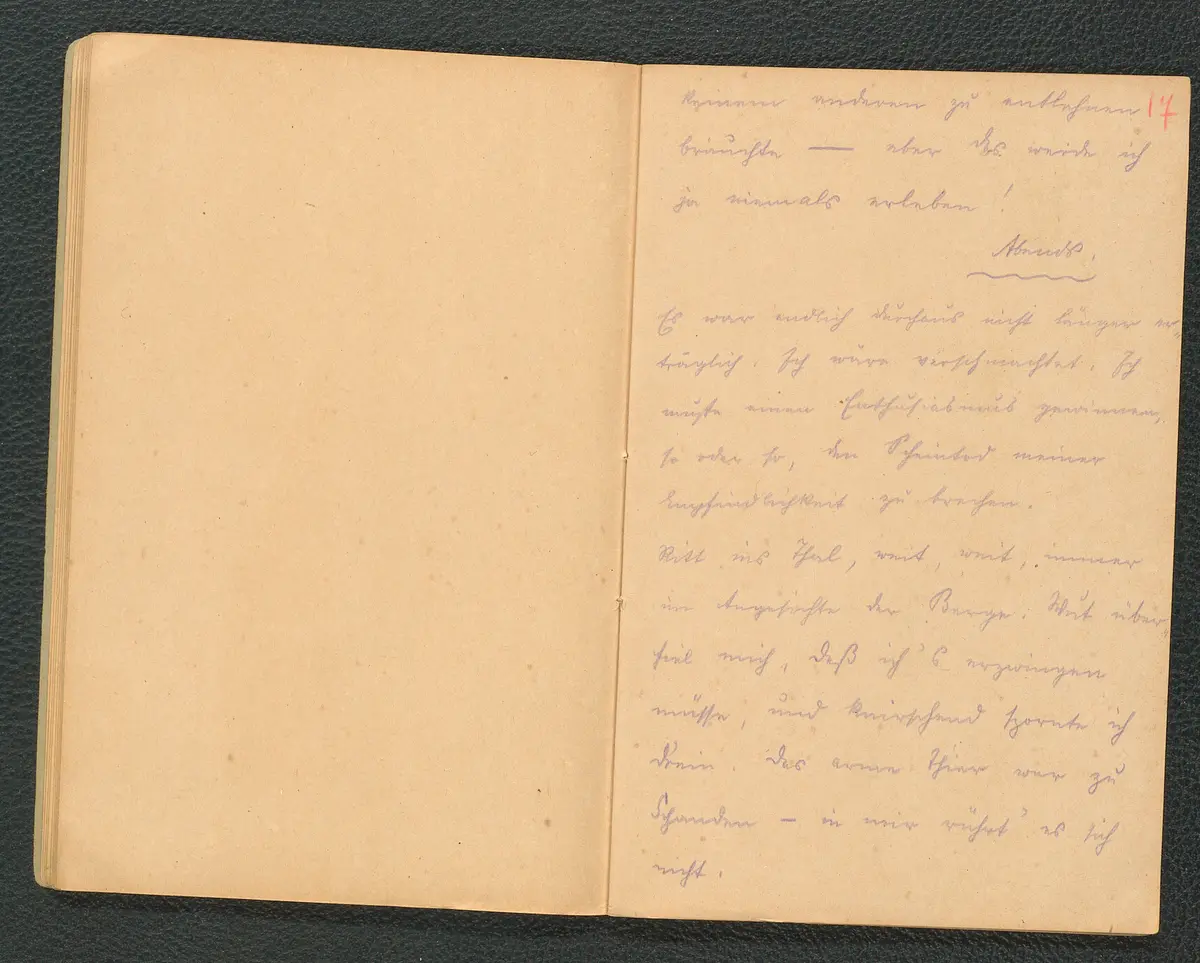 keinem anderen zu entlehnen 17
brauchte — aber das werde ich
ja niemals erleben!
Abends.
Es war endlich durchaus nicht länger er-
träglich. Ich wäre verschmachtet. Ich
mußte einen Enthusiasmus gewinnen,
so oder so, den Scheintod meiner
Empfindlichkeit zu brechen.
Ritt ins Thal, weit, weit, immer
im Angesichte der Berge. Wut über-
fiel mich, daß ich's erzwingen
müsse, und knirschend spornte ich
drein. Das arme Thier war zu
Schanden – in mir rührt' es sich
nicht.